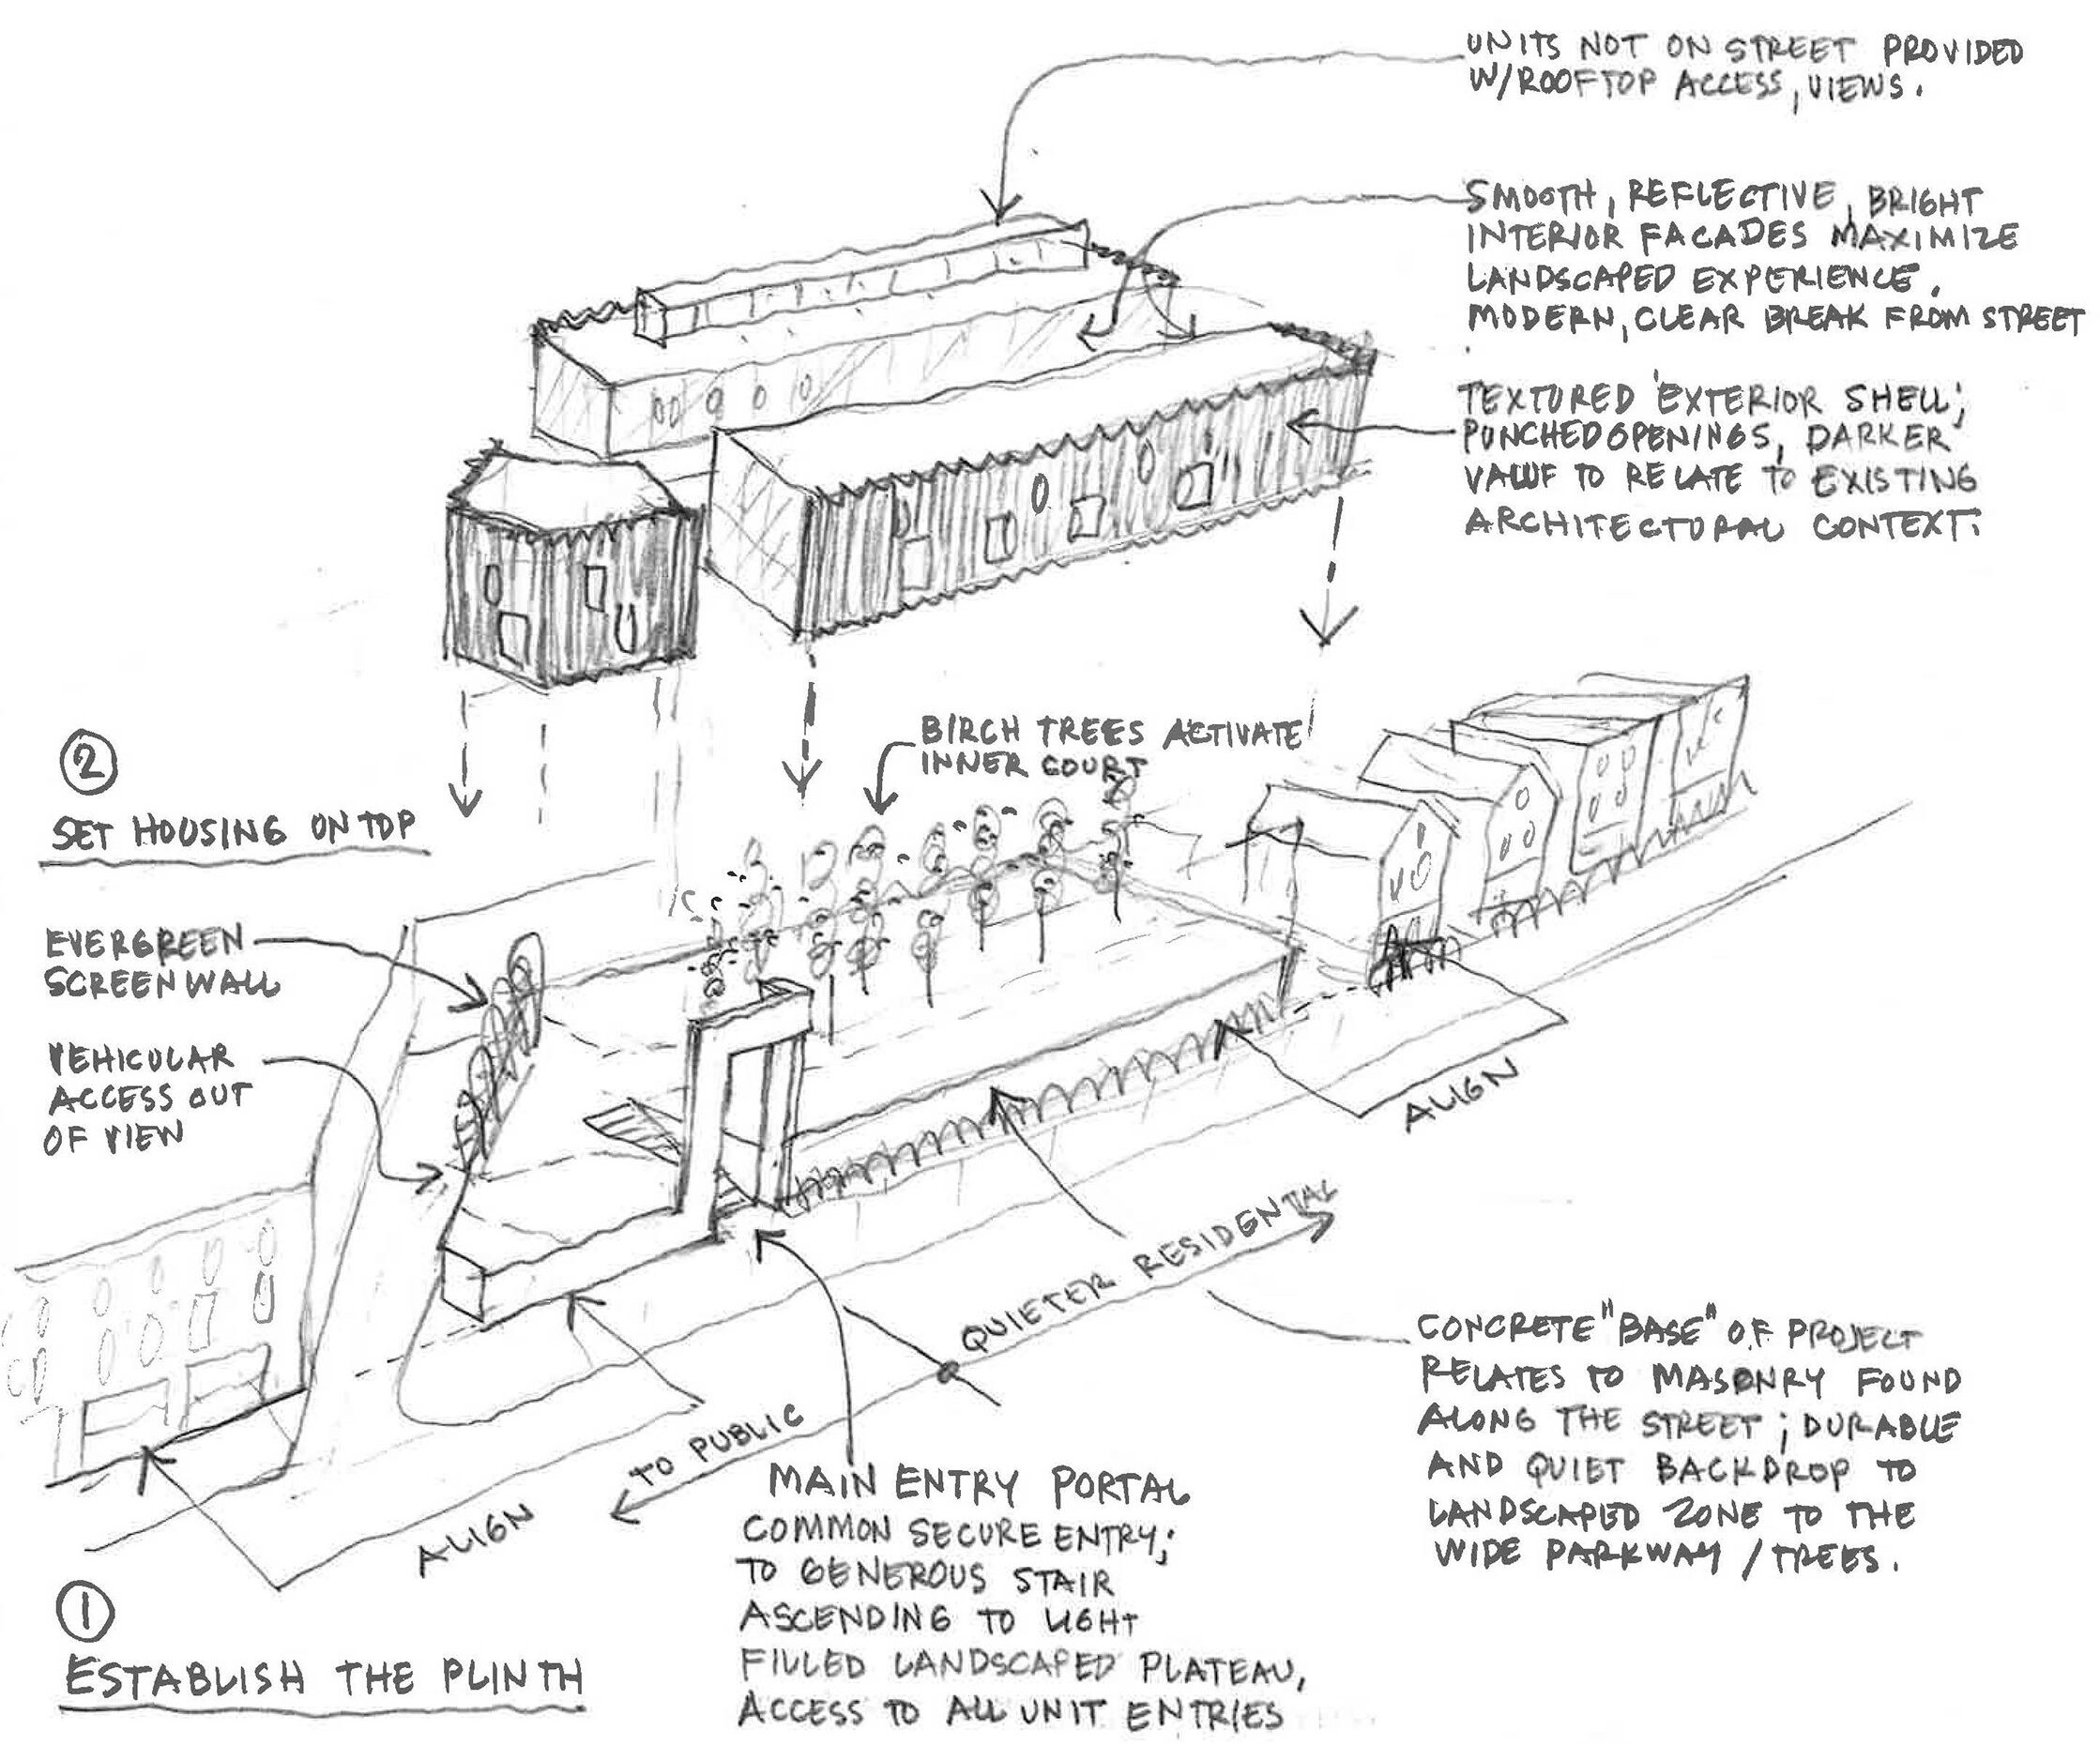 UNITS NOT ON STREET PROVIDED
W/ROOFTOP ACCESS, VIEWS.
SMOOTH, REFLECTIVE, BRIGHT
INTERIOR FACADES MAXIMIZE
LANDSCAPED EXPERIENCE.
MODERN, CLEAR BREAK FROM STREET
TEXTURED 'EXTERIOR SHELL;
PUNCHED OPENINGS, DARKER
VALUE TO RELATE TO EXISTING
ARCHITECTURAL CONTEXT.
BIRCH TREES ACTIVATE
INNER COURT
2
SET HOUSING ON TOP
EVERGREEN
SCREEN WALL
VEHICULAR
ACCESS OUT
OF VIEW
ALIGN
QUIETER RESIDENTAL
TO PUBLIC
ALIGN
CONCRETE "BASE" OF PROJECT
RELATES TO MASONRY FOUND
ALONG THE STREET; DURABLE
AND QUIET BACKDROP TO
LANDSCAPED ZONE TO THE
WIDE PARKWAY / TREES.
MAIN ENTRY PORTAL
COMMON SECURE ENTRY;
TO GENEROUS STAIR
ASCENDING TO LIGHT
FILLED LANDSCAPED PLATEAU,
ACCESS TO ALL UNIT ENTRIES
1
ESTABLISH THE PLINTH